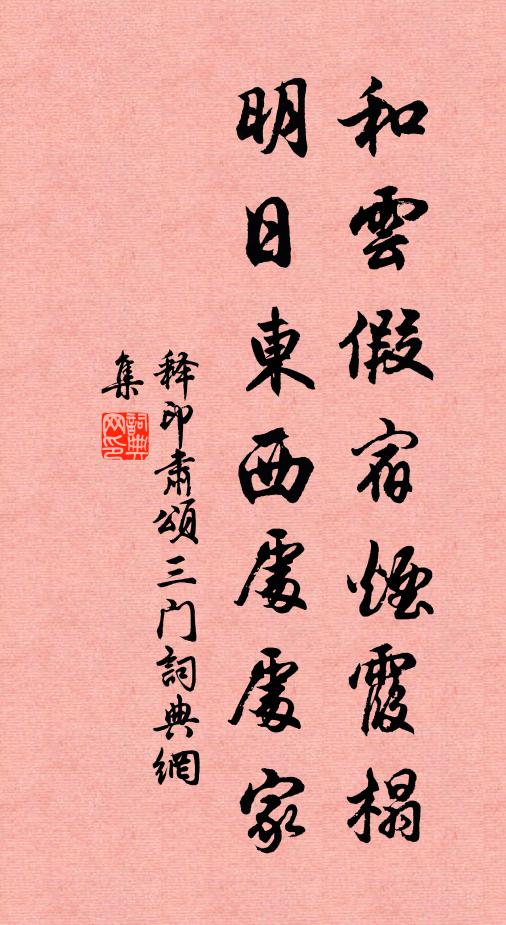 和雲假宿煙霞榻
明日東西處處家
释印肅頌三门詞典網
集
詞典
网印